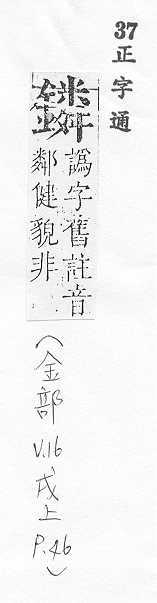 37正字通
鏻
譌字舊註音
鄰健貌非
(金部 V.16 戌上 P.46)